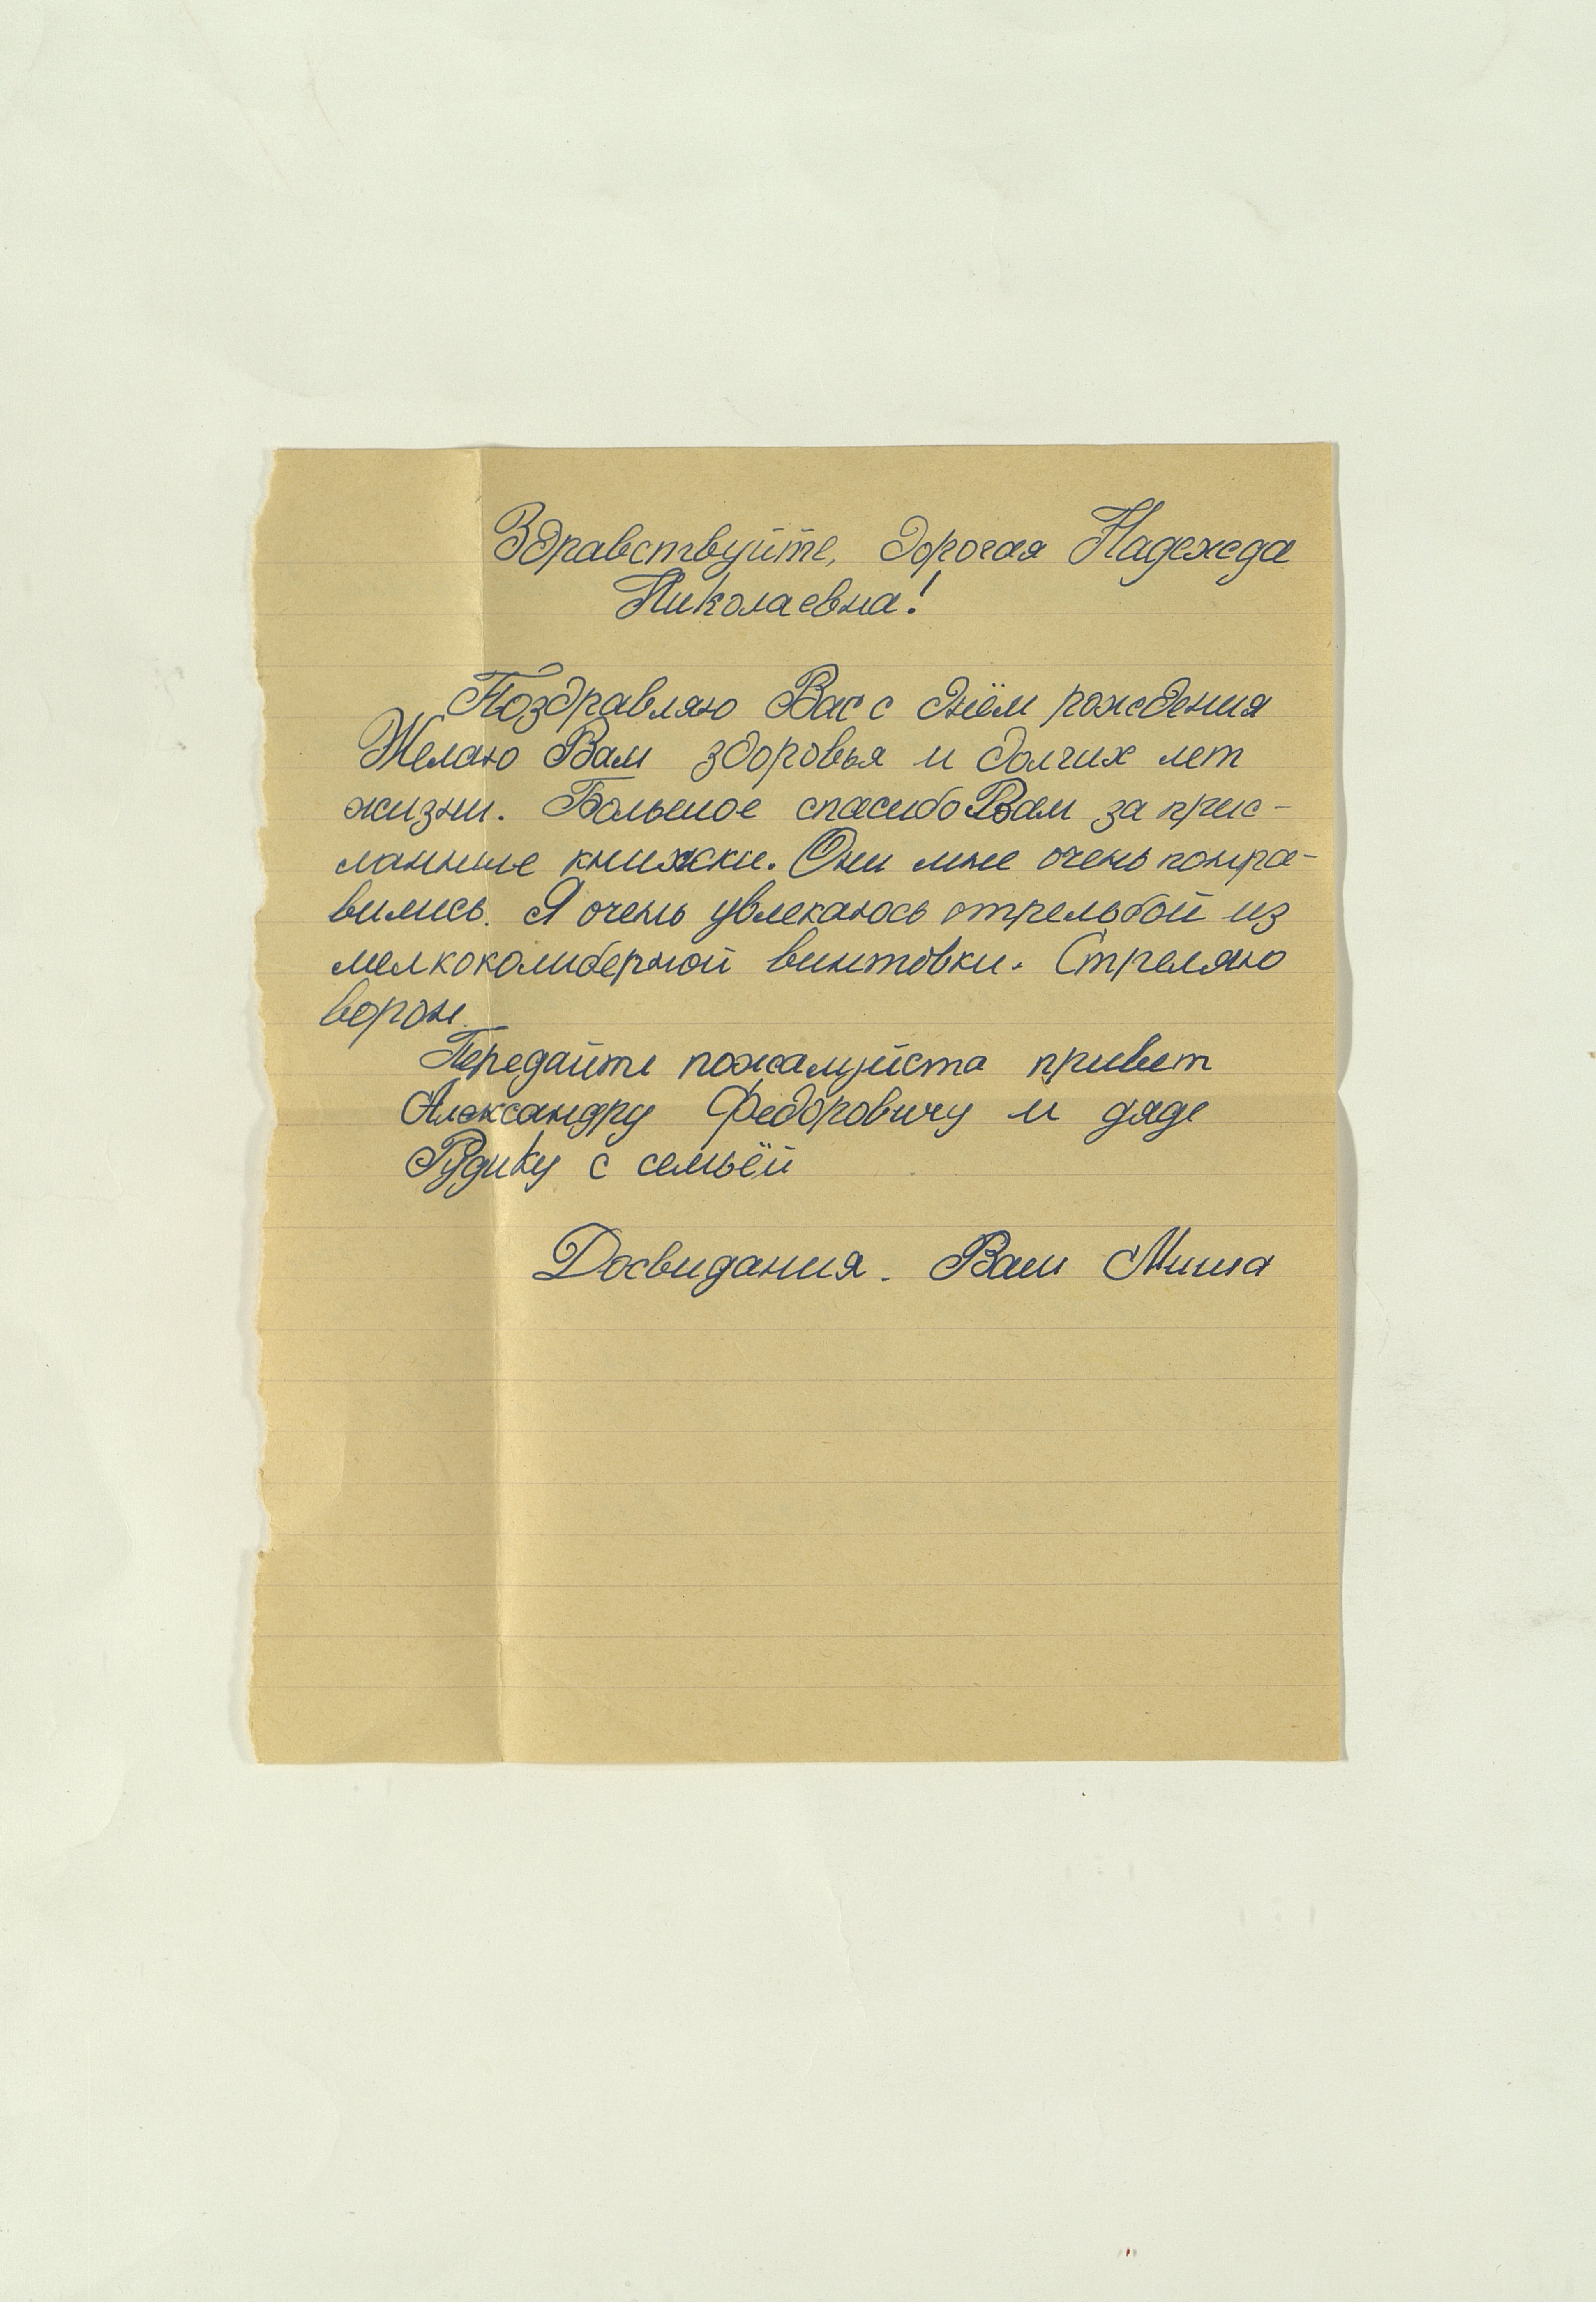 Здравствуйте, дорогая Надежда
Николаевна!
Поздравляю Вас с днём рождения
Желаю Вам здоровья и долгих лет
жизни. Большое спасибо Вам за прис-
ланные книжки. Они мне очень понра-
вились. Я очень увлекаюсь стрельбой из
мелкокалиберной винтовки. Стреляю
ворон.
Передайте пожалуйста привет
Александру Федоровичу и дяде
Рудику с семьёй
Досвидания. Ваш Миша